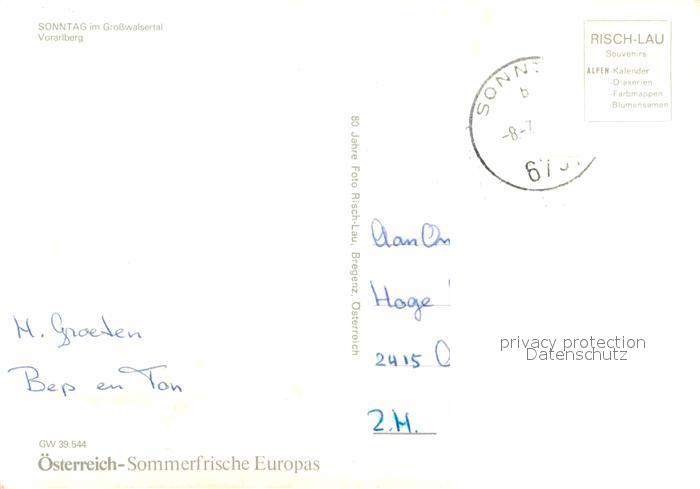 SONNTAG im Großwalsertal
Vorarlberg
RISCH-LAU
Souvenirs
ALPEN-Kalender
-Diaserien
-Farbmappen
-Blumensamen
SONN
b
-8.-7
80 Jahre Foto Risch-Lau, Bregenz, Österreich
Aan
Hoge
2415
Z.H.
privacy protection
Datenschutz
H. Groeten
Bep en Ton
GW 39.544
Österreich-Sommerfrische Europas